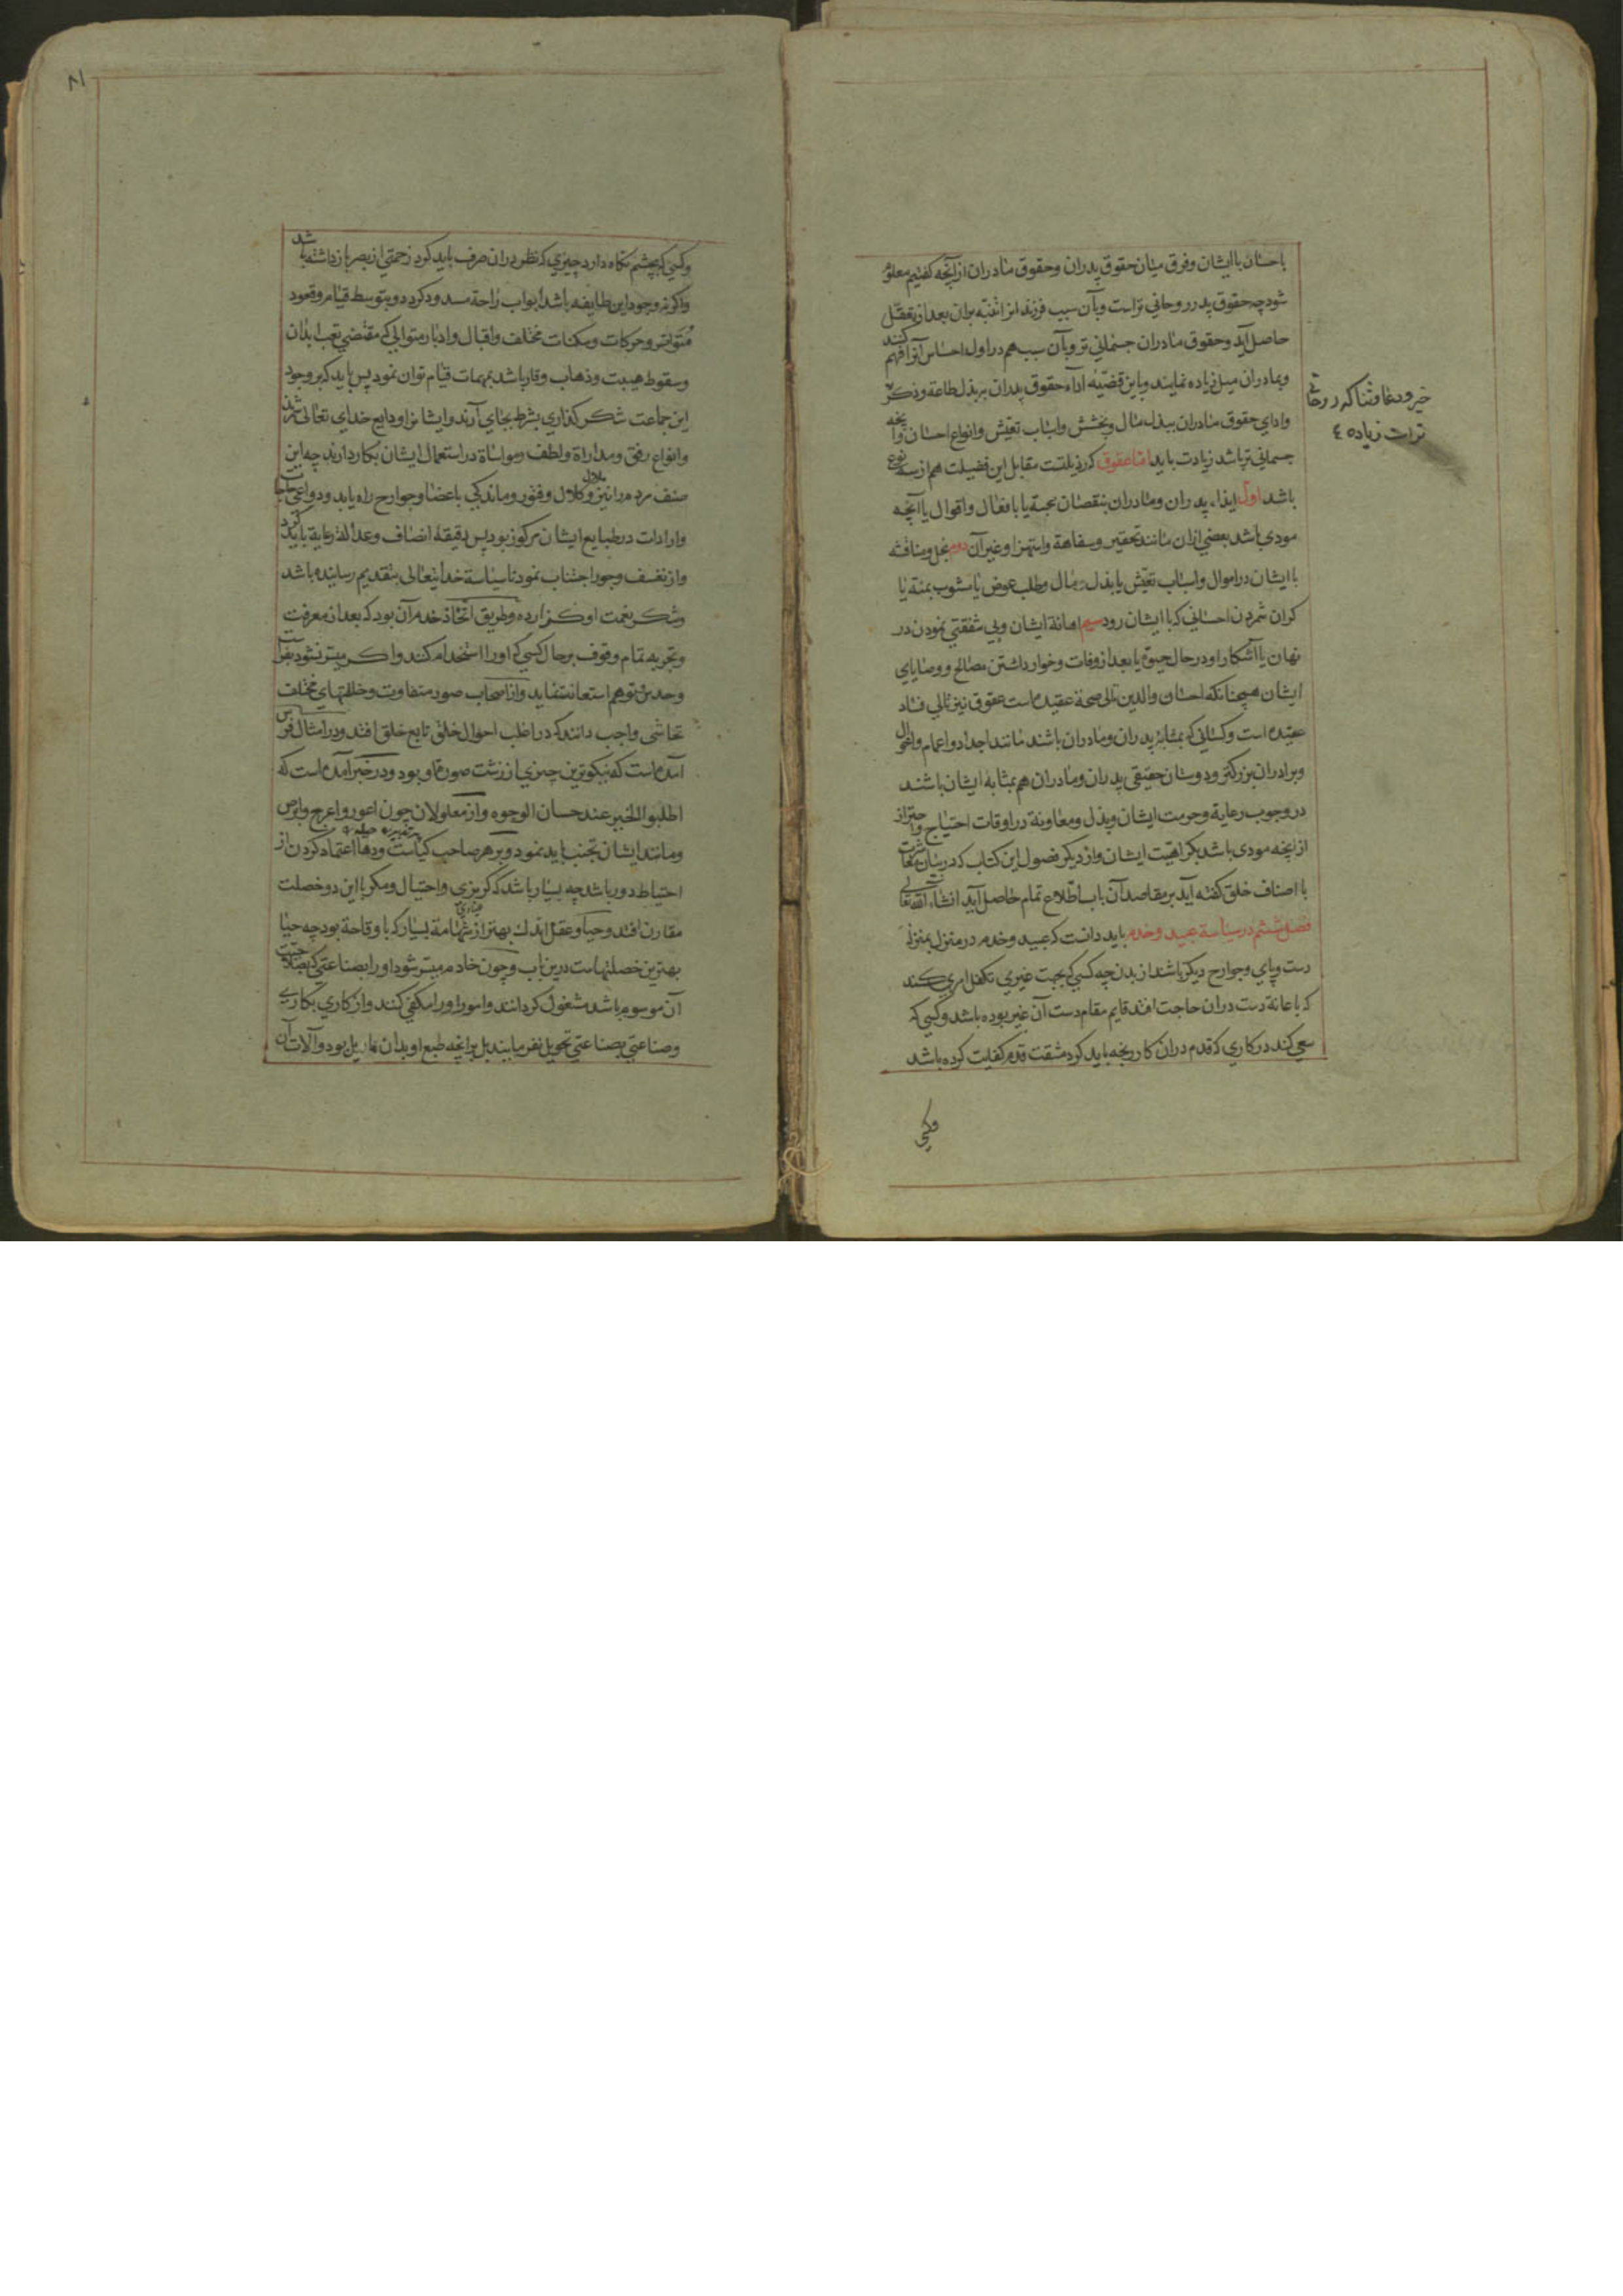 باحسان با ایشان و فرق میان حقوق پدران و حقوق مادران ازآنچه کفتیم معلوم
شود چه حقوق پدر روحانی تراست وبآن سبب فرزند انرا تنبّه بران بعد از تعقّل
حاصل آید وحقوق مادران جسمانی تر وبآن سبب هم در اول احساس آنرا فهم کنند
وبمادران میل زیاده نمایند وباین قضیّه اداء حقوق پدران ببذل طاعة وذکر
خیر ودعا وثنا که روحانی
تراست زیاده ٤
وادای حقوق مادران ببذل مال وبخشش واسباب تعیّش وانواع احسان وآنچه
جسمانی تر باشد زیادت باید اما عقوق که رذیلتست مقابل این فضیلت هم از سه نوع
باشد اول ایذاء پدران ومادران بنقصان محبة یا بافعال واقوال یا آنچه
مودی باشد ببعضی ازان مانند تحقیر وسفاهة واستهزا وغیر آن دوم بخل ومناقشه
با ایشان در اموال واسباب تعیّش یا بذل مال وطلب عوض یا مشوب بمنة یا
کران شمردن احسانی که با ایشان رود سیم اهانة ایشان وبی شفقتی نمودن در
نهان یا آشکارا ودر حال حیوة یا بعد از وفات وخوار داشتن مصالح ووصایای
ایشان همچنانکه احسان والدین تالی صحة عقیده است عقوق نیز تالی فساد
عقیده است وکسانی که بمثابه پدران ومادران باشند مانند اجداد واعمام واخوال
وبرادران بزرکتر ودوستان حقیقی پدران ومادران هم بمثابه ایشان باشند
در وجوب رعایة وحرمت ایشان وبذل ومعاونة در اوقات احتیاج واحتراز
از آنچه مودی باشد بکراهیّت ایشان واز دیکر فصول این کتاب که در بیان معاشرت
با اصناف خلق کفته آید بر مقاصد آن باب اطّلاع تمام حاصل آید انشاء الله تعالی
فصل ششم در سیاسة عبید وخدم باید دانست که عبید وخدم در منزل بمنزله
دست وپای وجوارح دیکر باشند از بدن چه کسی که بجهت غیری تکفل امری کند
که باعانة دست دران حاجت افتد قایم مقام دست آن غیر بوده باشد وکسی که
سعی کند در کاری که قدم دران کار رنجه باید کرد مشقت قدم کفایت کرده باشد
وکسی
٨١
وکسی که بچشم نکاه دارد چیزی که نظر دران صرف باید کرد زحمتی از بصر باز داشته باشد
واکر نه وجود این طایفه باشد ابواب راحة مسدود کردد وبتوسط قیام وقعود
متواتر وحرکات وسکنات مختلف واقبال وادبار متوالی که مقتضی تعب ابدان
وسقوط هیبت وذهاب وقار باشد بمهمات قیام توان نمود پس باید که بر وجود
این جماعت شکر کذاری بشرط بجای آرند وایشانرا ودایع خدای تعالی شمرند
وانواع رفق ومداراة ولطف ومواساة در استعمال ایشان بکار دارند چه این
صنف مردم را نیز ملال وکلال وفتور وماندکی باعضا وجوارح راه یابد ودواعی حاجات
وارادات در طبایع ایشان مرکوز بود پس دقیقهٔ انصاف وعدالة رعایة باید کرد
واز تعسف وجور اجتناب نمود تا سیاسة خدایتعالی بتقدیم رسانیده باشد
وشکر نعمت او کزارده وطریق اتّخاذ خدم آن بود که بعد از معرفت
وتجربه تمام ووقوف بر حال کسی که اورا استخدام کنند واکر میسّر نشود بفراست
وحدس وتوهم استعانت نماید واز اصحاب صور متفاوت وخلقتهای مختلف
تحاشی واجب دانند که در اغلب احوال خلق تابع خلق افتد ودر امثال فرس
آمده است که نیکوترین چیزی از زشت صورة او بود ودر خبر آمده است که
اطلبوا الخیر عند حسان الوجوه واز معلولان چون اعور واعرج وابرص
ومانند ایشان تجنب باید نمود وبر هر صاحب کیاست ودها اعتماد کردن از
احتیاط دور باشد چه بسیار باشد که کربزی واحتیال ومکر با این دو خصلت
مقارن افتد وحیا وعقل اندک بهتر از شهامة بسیار که با وقاحة بود چه حیا
بهترین خصلتهاست درین باب وچون خادم میسّر شود اورا بصناعتی که بصلاحیّت
آن موسوم باشد مشغول کردانند وامور اورا مکفی کنند واز کاری بکاری
وصناعتی بصناعتی تحویل نفرمایند بل برآنچه طبع او بدان مایل بود وآلات آن